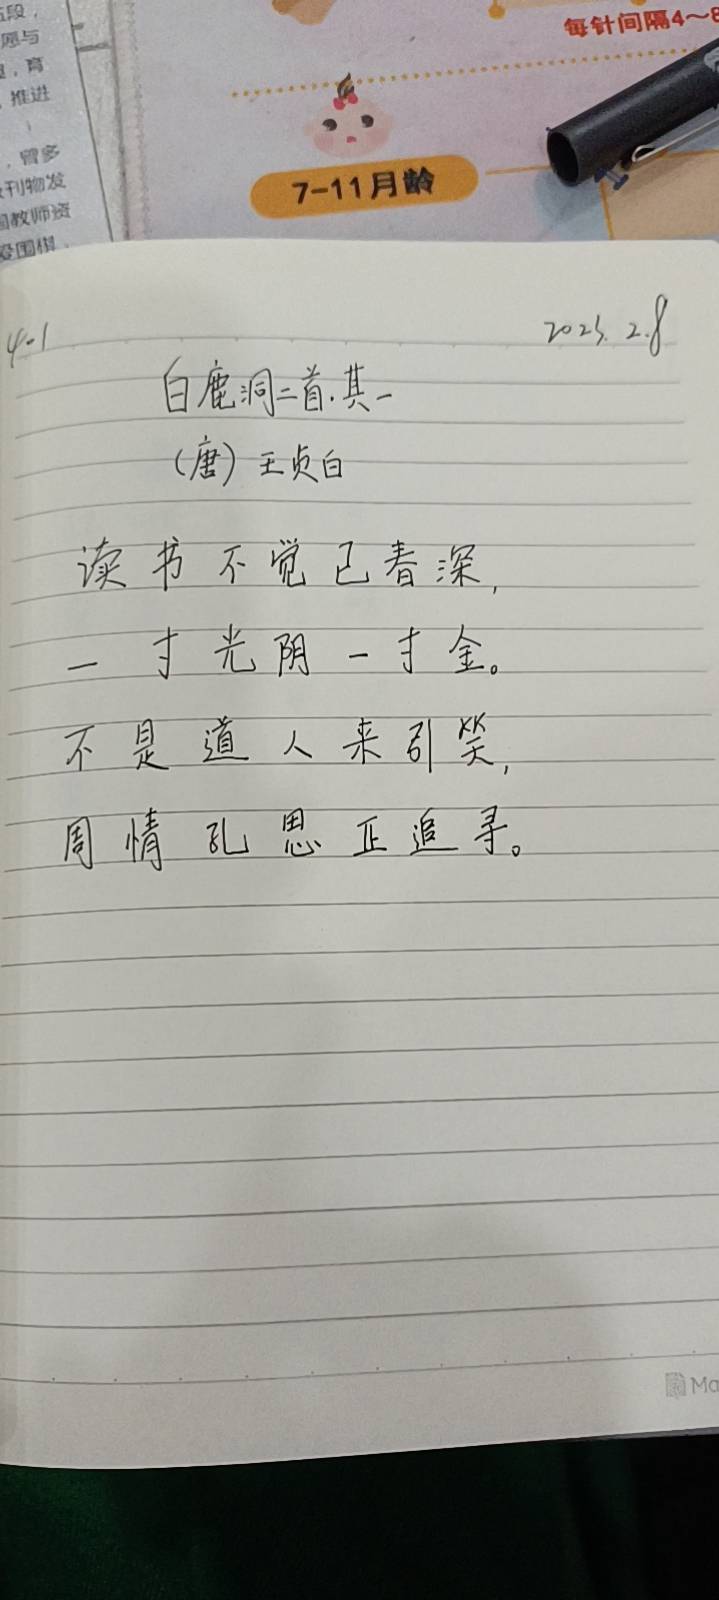 五段，
愿与
，育
，推进
，曾多
刊物发
教师资
围棋，
每针间隔4～8
7-11月龄
4-1
2025.2.8
白鹿洞二首·其一
（唐）王贞白
读书不觉已春深，
一寸光阴一寸金。
不是道人来引笑，
周情孔思正追寻。
Ma